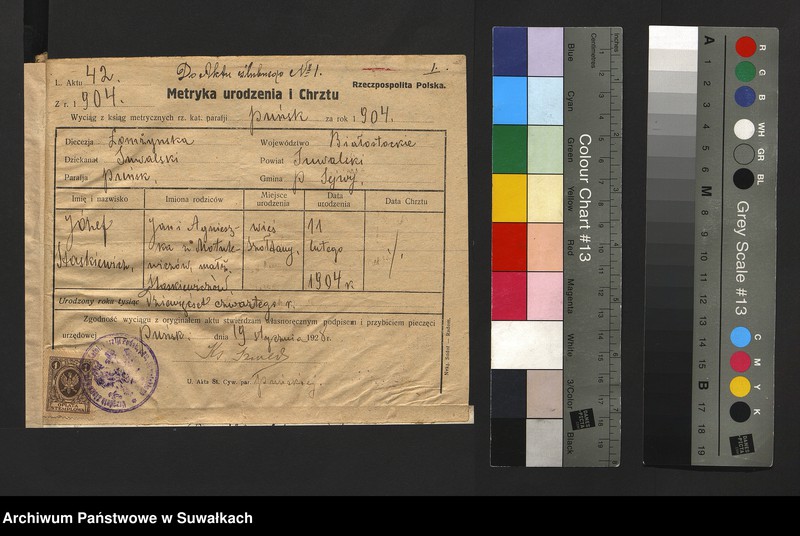 L. Aktu 42.
Do Aktu ślubnego № 1.
1.
Z r. 1904.
Metryka urodzenia i Chrztu
Rzeczpospolita Polska.
Wyciąg z ksiąg metrycznych rz. kat. parafji Puńsk za rok 1904.
Diecezja Łomżyńska
Województwo Białostockie
Dziekanat Suwalski
Powiat Suwalski
Parafja Puńsk.
Gmina Sejwy.
Imię i nazwisko
Imiona rodziców
Miejsce urodzenia
Data urodzenia
Data Chrztu
Józef
Staskiewicz,
Jan i Agniesz-
ka
małż.
Staskiewiczów
wieś
11
lutego
1904 r.
Urodzony roku tysiąc Dziewięćset czwartego r.
Zgodność wyciągu z oryginałem aktu stwierdzam własnoręcznym podpisem i przybiciem pieczęci
urzędowej Puńsk. dnia 19 stycznia 1928 r.
Ks.
U. Akta St. Cyw. par. Puńskiej.
OPŁATA STEMPLOWA
Inches
Centimetres
Colour Chart #13
Blue
Cyan
Green
Yellow
Red
Magenta
White
3/Color
Black
DANES PICTA
Grey Scale #13
A 1 2 3 4 5 6 M 8 9 10 11 12 13 14 15 B 17 18 19
R
G
B
WH
GR
BL
C
M
Y
K
DANES PICTA
Archiwum Państwowe w Suwałkach